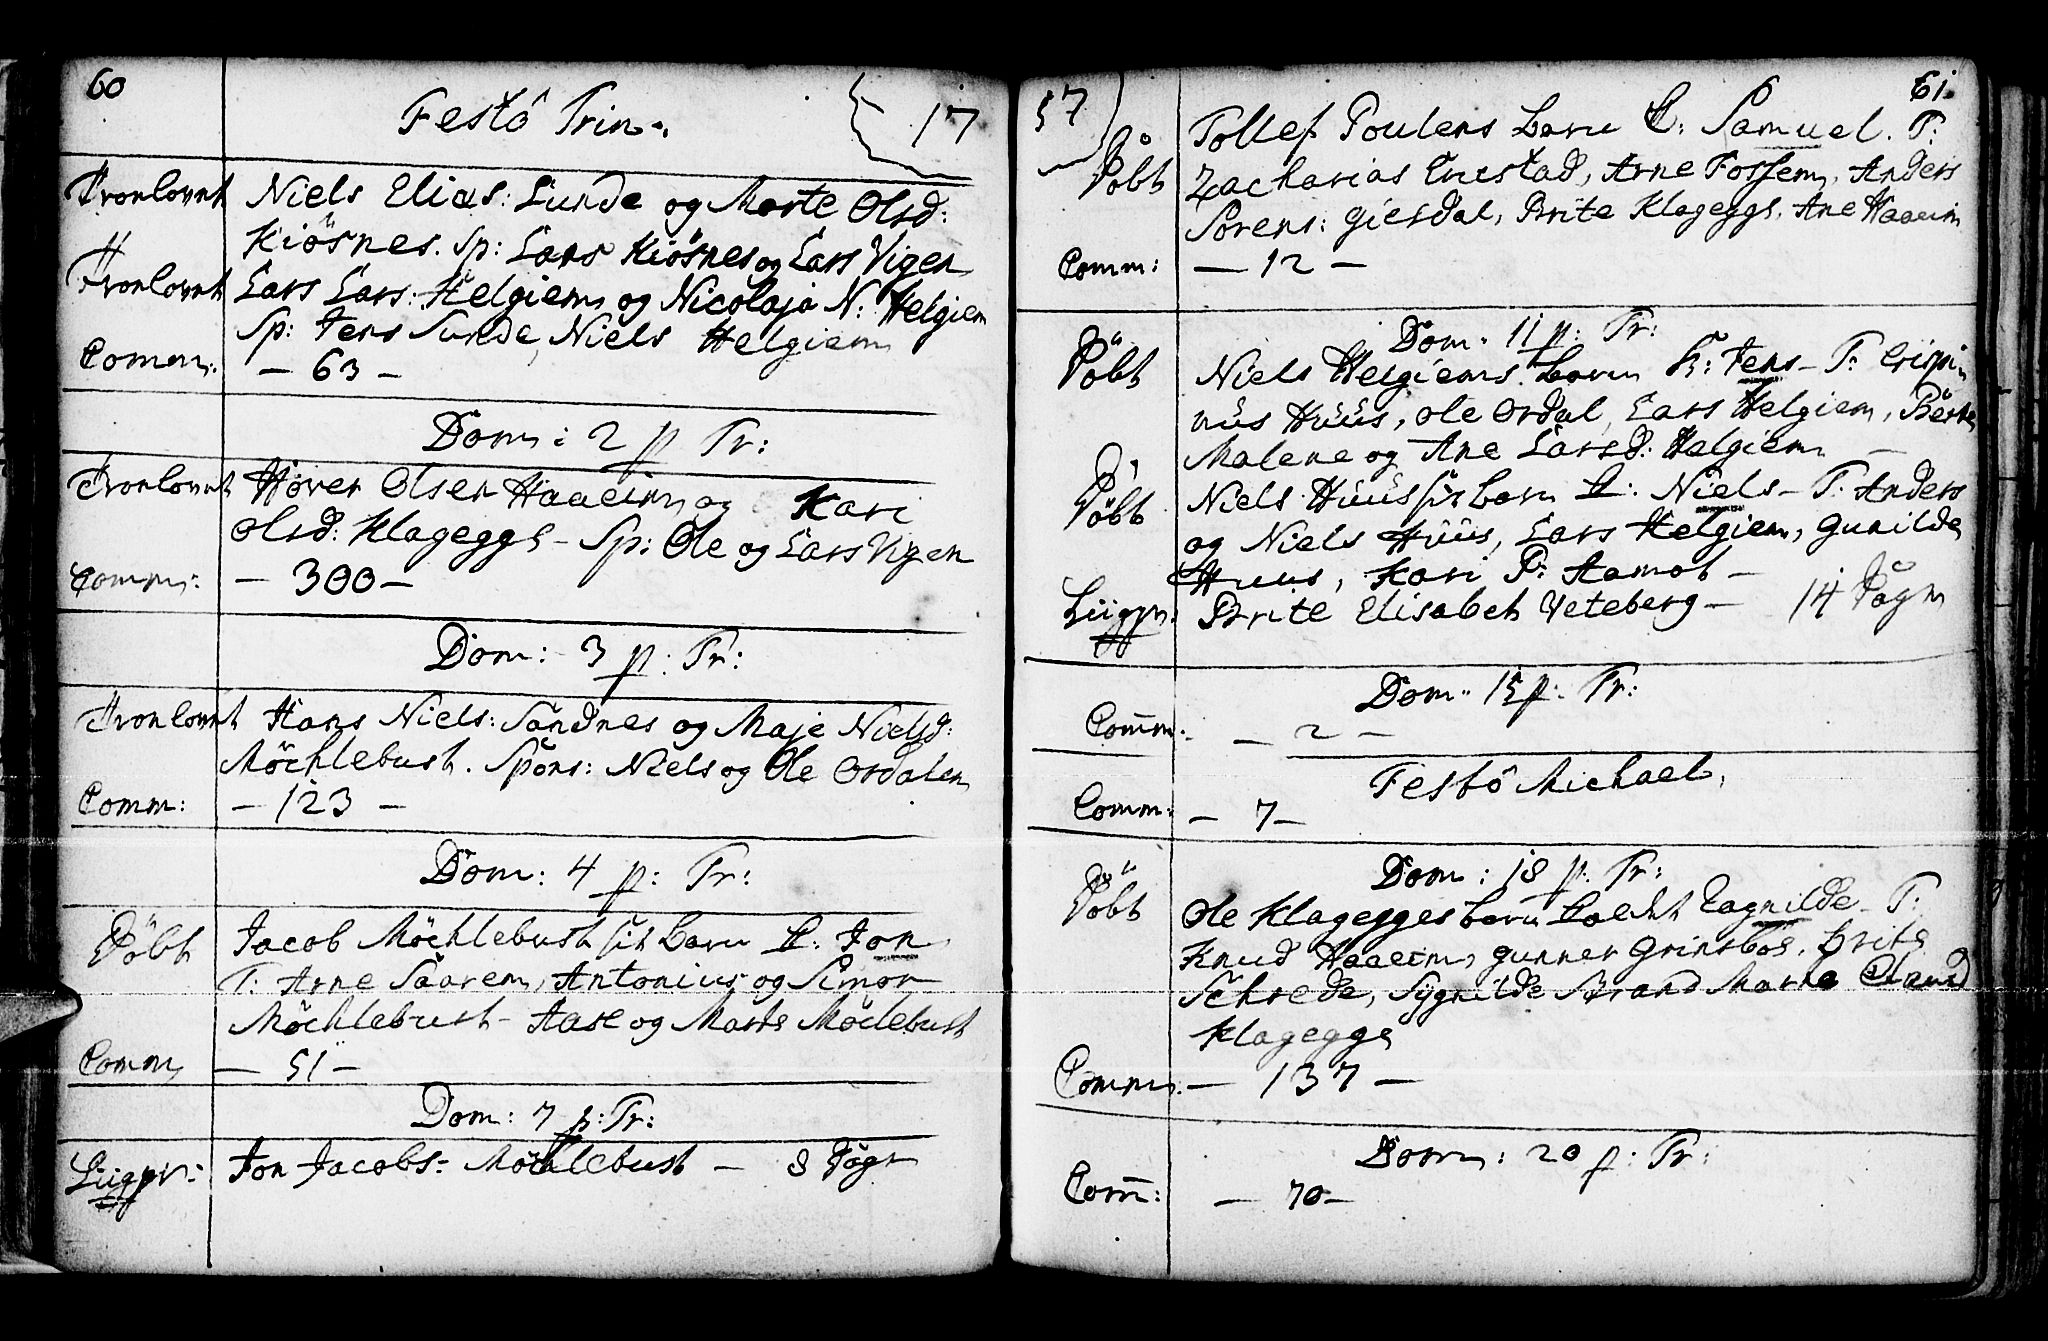 60
Festô Trin:
17
Trorlovet Niels Elias: Lunde og Marte Olsd:
Kiösnes. Sp: Lars Kiösnes og Lars Vigen
Trorlovet Lars Lars: Helgiem og Nicolaja N: Helgiem
Sp: Jens Sunde, Niels Helgiem
Comm: — 63 —
Dom: 2 p Tr:
Trorlovet Höver Olsen Haaeim og Kari
Olsd: Klagegge — Sp: Ole og Lars Vigen
Comm: — 300 —
Dom: 3 p: Tr:
Trorlovet Hans Niels: Sandnes og Maje Nielsd:
Möchlebust. Spons: Niels og Ole Ordalen
Comm: — 123 —
Dom: 4 p: Tr:
Döbt Jacob Möchlebust sit barn D: Jon
T: Arne Saarem, Antonius og Simon
Möchlebust — Aase og Marte Möclebust
Comm — 51 —
Dom: 7 p: Tr:
Liigpr: Jon Jacobs: Möchlebust — 8 Dögn
57
61.
Döbt Tollef Poulens barn D: Samuel. T:
Zacharias Erestad, Arne Fossem, Anders
Sörens: Giesdal, Brite Klagegge, Ane Haaeim
Comm: — 12 —
Dom. 11 p: Tr:
Döbt Niels Helgiems barn K: Jens — T: Crispi
nus Huus, Ole Ordal, Lars Helgiem, Berte
Malene og Ane Larsd: Helgiem —
Döbt Niels Huus sit barn D: Niels — T: Anders
og Niels Huus, Lars Helgiem, Gunilde
Huus, Kari P: Aamot —
Liigpr: Brite Elisabet Veteberg — 14 Dögn
Dom. 15 p: Tr:
Com̄m: — 2 —
Festô Michael,
Comm: — 7 —
Dom: 18 p. Tr:
Döbt Ole Klagegges barn kaldet Ragnilde — T:
Knud Haaeim, Gunner Grinsboe, Brite
Schrede, Sygnilde Strand Marte
Klagegge
Comm. — 137 —
Dom: 20 p: Tr:
Com̄: — 70 —